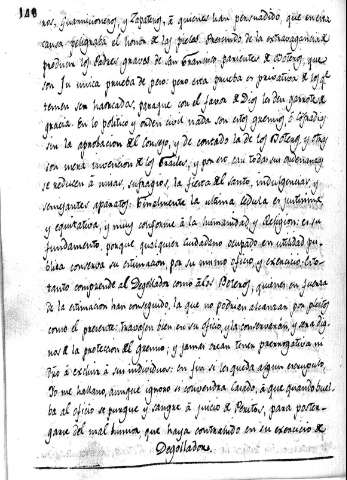 140
ros, Guarnicioneros, y Zapateros, à quienes han persuadido, que en esta
causa peligraba el honor de las pieles. Prescindo de la extravagancia de
producir los Padres graves de San Francisco, parientes de Boteros, que
son su unica prueba de peso: pero esta prueba es privativa de los que
temen ser ahorcados, paraque con el favor de Dios les den garrote de
gracia. En lo politico y orden civil nada son estos gremios, ò cofradias
sin la aprobacion del Consejo, y de contado la de los Boteros, y otras
son mera invencion de los Frailes, y por eso en todas sus ordenanzas
se reducen à misas, sufragios, la fiesta del santo, indulgencias, y
semejantes aparatos. Finalmente la ultima cedula es justisima,
y equitativa, y muy conforme à la humanidad y Religion: es su
fundamento, porque qualquier ciudadano ocupado en utilidad pu-
blica conserva su estimacion, por su mismo oficio, y exercicio: Por
tanto comprende al Degollador como à los Boteros, quienes en fuerza
de la estimacion han conseguido, la que no podrian alcanzar por pleitos
como el presente: trabajen bien en su oficio, y la conservaràn, y seràn dig-
nos de la proteccion del gremio; y jamas crean tener prerrogativa ni
dño à excluir à sus individuos: en fin si les queda algun escrupulo,
Yo me hallano, aunque ignoro si convendra Laredo, à que quando buel-
ba al oficio se purgue y sangre à juicio de Peritos, para poster-
garse del mal humor que haya contrahido en su exercicio de
Degollador.